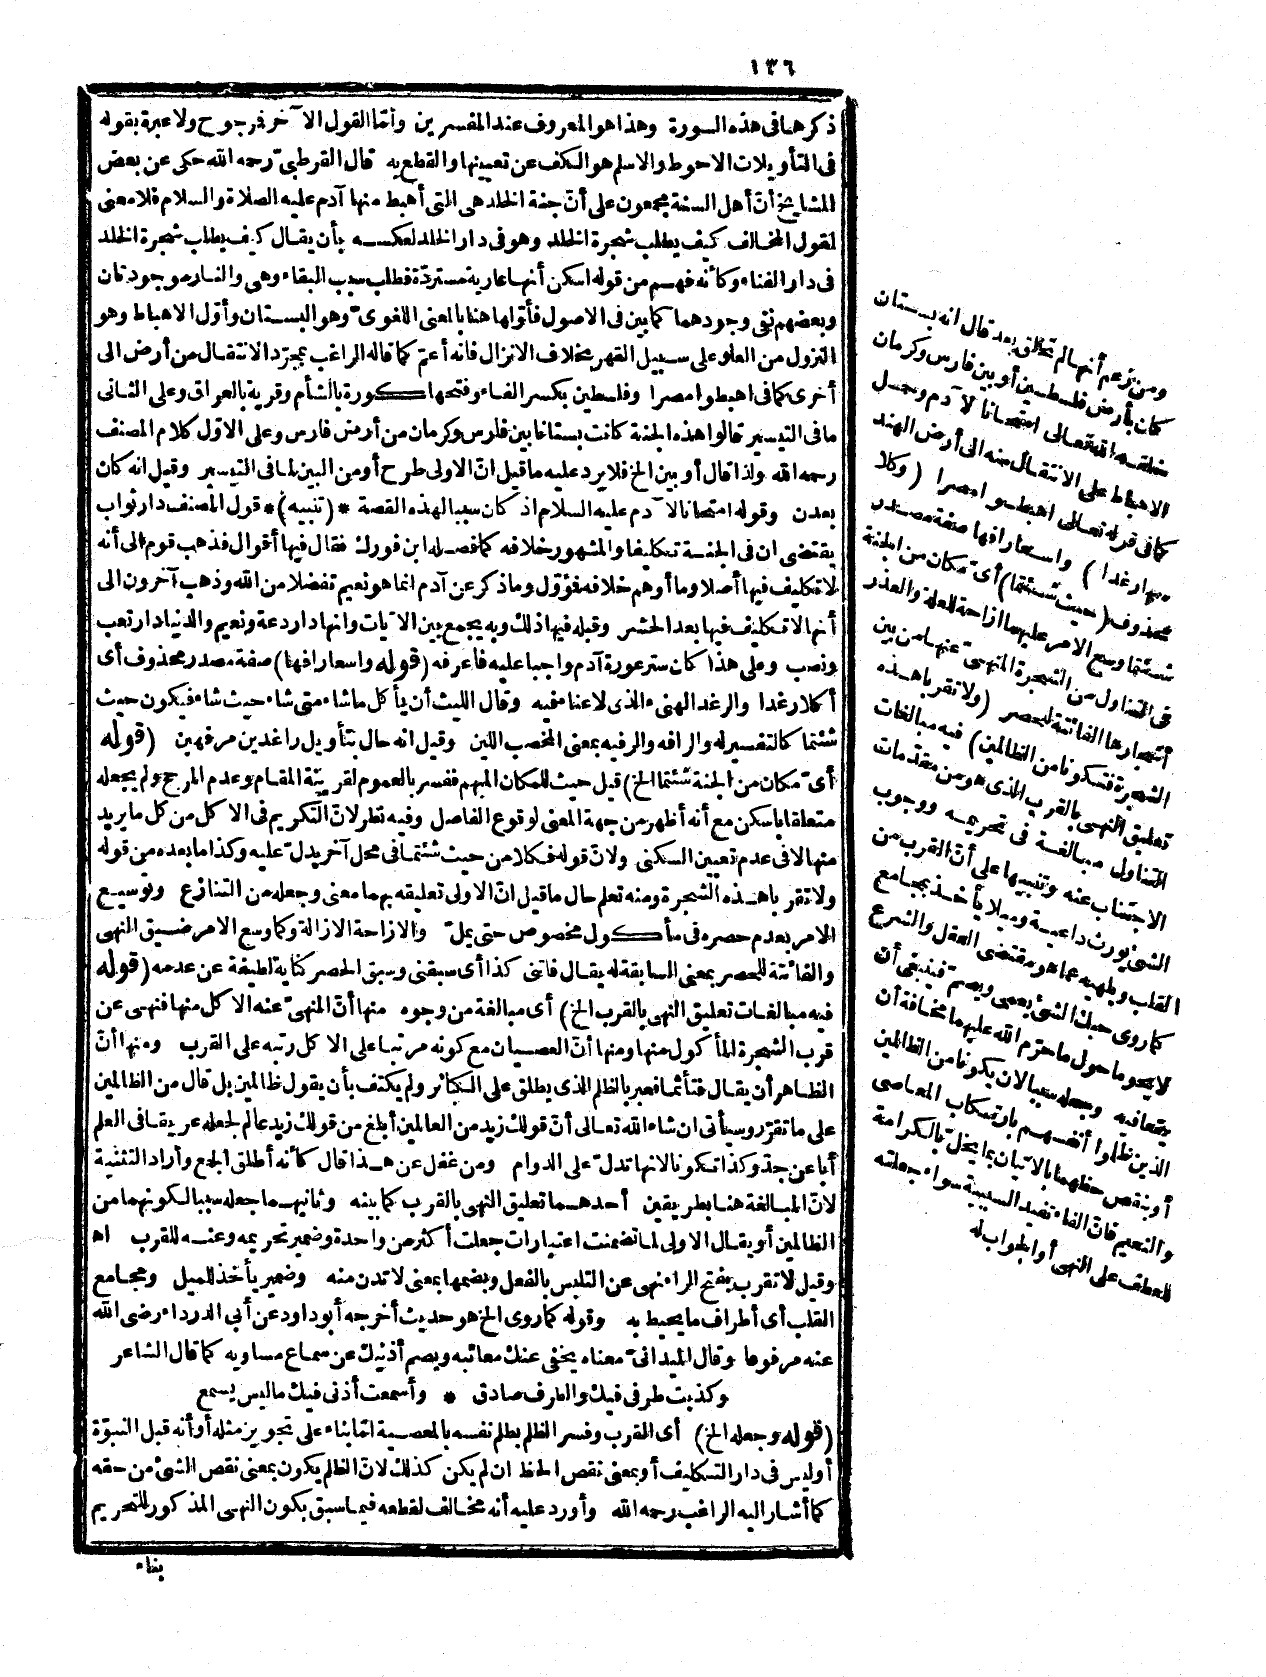 ١٣٦
ذكرها فى هذه السورة وهذا هو المعروف عند المفسرين وأمّا القول الآخر فرجوح ولا عبرة بقوله
فى التأويلات الاحوط والاسلم هو الكف عن تعيينها والقطع به قال القرطبىّ رحمه الله حكى عن بعض
المشايخ أنّ أهل السنة مجمعون على أنّ جنة الخلد هى التى أهبط منها آدم عليه الصلاة والسلام فلا معنى
لقول المخالف كيف يطلب شجرة الخلد وهو فى دار الخلد لعكسه بأن يقال كيف يطلب شجرة الخلد
فى دار الفناء وكأنه فهم من قوله اسكن أنها عارية مستردّة فطلب سبب البقاء وهى والنار موجودتان
وبعضهم نفى وجودهما كما بين فى الاصول فأوّلها هنا بالمعنى اللغوىّ وهو البستان وأوّل الاهباط وهو
النزول من العلو على سبيل القهر بخلاف الانزال فانه أعمّ كما قاله الراغب بمجرّد الانتقال من أرض الى
أخرى كما فى اهبطوا مصرا وفلسطين بكسر الفاء وفتحها كورة بالشأم وقرية بالعراق وعلى الثانى
ما فى التيسير قالوا هذه الجنة كانت بستانا بين فارس وكرمان من أرض فارس وعلى الاوّل كلام المصنف
رحمه الله ولذا قال أو بين الخ فلا يرد عليه ما قيل انّ الاولى طرح أو من البين لما فى التيسير وقيل انه كان
بعدن وقوله امتحانا لآدم عليه السلام اذ كان سببا لهذه القصة * (تنبيه) * قول المصنف دار ثواب
يقتضى ان فى الجنة تكليفا والمشهور خلافه كما فصله ابن فورك فقال فيها أقوال فذهب قوم الى أنه
لا تكليف فيها أصلا وما أوهم خلافه مؤوّل وما ذكر عن آدم انما هو نعيم تفضلا من الله وذهب آخرون الى
أنها لا تكليف فيها بعد الحشر وقبله فيها ذلك وبه يجمع بين الآيات وانها دار دعة ونعيم والدنيا دار تعب
ونصب وعلى هذا كان ستر عورة آدم واجبا عليه فاعرفه (قوله واسعا رافها) صفة مصدر محذوف أى
أكلا رغدا والرغد الهنىء الذى لا عناء فيه وقال الليث أن يأكل ما شاء متى شاء حيث شاء فيكون حيث
شئتما كالتفسير له والرافه والرفيه بمعنى المخصب اللين وقيل انه حال بتأويل راغدين مرفهين (قوله
أىّ مكان من الجنة شئتما الخ) قيل حيث للمكان المبهم ففسر بالعموم لقرينة المقام وعدم المرجح ولم يجعله
متعلقا باسكن مع أنه أظهر من جهة المعنى لوقوع الفاصل وفيه نظر لانّ التكريم فى الاكل من كل ما يريد
منها لا فى عدم تعيين السكنى ولانّ قوله فكلا من حيث شئتما فى محل آخر يدلّ عليه وكذا ما بعده من قوله
ولا تقربا هذه الشجرة ومنه تعلم حال ما قيل انّ الاولى تعليقه بهما معنى وجعله من التنازع وتوسيع
الامر بعدم حصره فى مأكول مخصوص حتى يملّ والازاحة الازالة وكما وسع الامر ضيق النهى
والفائتة للحصر بمعنى السابقة له يقال فاتنى كذا أى سبقنى وسبق الحصر كناية لطيفة عن عدمه (قوله
فيه مبالغات تعليق النهى بالقرب الخ) أى مبالغة من وجوه منها أنّ المنهىّ عنه الاكل منها فنهى عن
قرب الشجرة المأكول منها ومنها أنّ العصيان مع كونه مرتبا على الاكل رتبه على القرب ومنها أنّ
الظاهر أن يقال فتأثما فعبر بالظلم الذى يطلق على الكبائر ولم يكتف بأن يقول ظالمين بل قال من الظالمين
على ما تقرّر وسيأتى ان شاء الله تعالى أنّ قولك زيد من العالمين أبلغ من قولك زيد عالم لجعله عريقا فى العلم
أبا عن جدّ وكذا تكونا لانها تدلّ على الدوام ومن غفل عن هذا قال كأنه أطلق الجمع وأراد التثنية
لانّ المبالغة هنا بطريقين أحدهما تعليق النهى بالقرب كما بينه وثانيهما جعله سببا لكونهما من
الظالمين أو يقال الاولى لما تضمنت اعتبارات جعلت أكثر من واحدة وضمير تحريمه وعنه للقرب اه
وقيل لا تقرب بفتح الراء نهى عن التلبس بالفعل وبضمها بمعنى لا تدن منه وضمير يأخذ للميل ومجامع
القلب أى أطراف ما يحيط به وقوله كما روى الخ هو حديث أخرجه أبو داود عن أبى الدرداء رضى الله
عنه مرفوعا وقال الميدانىّ معناه يخفى عنك معائبه ويصم أذنيك عن سماع مساويه كما قال الشاعر
وكذبت طرفى فيك والطرف صادق * وأسمعت أذنى فيك ما ليس يسمع
(قوله وجعله الخ) أى القرب وفسر الظلم بظلم نفسه بالمعصية امّا بناء على تجويز مثله أو أنه قبل النبوّة
أوليس فى دار التكليف أو بمعنى نقص الحظ ان لم يكن كذلك لانّ الظلم يكون بمعنى نقص الشئ من حقه
كما أشار اليه الراغب رحمه الله وأورد عليه أنه مخالف لقطعه فيما سبق بكون النهى المذكور للتحريم
بناء
ومن زعم أنها لم تخلق بعد قال انه بستان
كان بأرض فلسطين أو بين فارس وكرمان
خلقه الله تعالى امتحانا لآدم وحمل
الاهباط على الانتقال منه الى أرض الهند
كما فى قوله تعالى اهبطوا مصرا (وكلا
منها رغدا) واسعا رافها صفة مصدر
محذوف (حيث شئتما) أىّ مكان من الجنة
شئتما وسع الامر عليهما ازاحة للعلة والعذر
فى التناول من الشجرة المنهىّ عنها من بين
أشجارها الفائتة للحصر (ولا تقربا هذه
الشجرة فتكونا من الظالمين) فيه مبالغات
تعليق النهى بالقرب الذى هو من مقدمات
التناول مبالغة فى تحريمه ووجوب
الاجتناب عنه وتنبيها على أنّ القرب من
الشئ يورث داعية وميلا يأخذ بمجامع
القلب ويلهيه عما هو مقتضى العقل والشرع
كما روى حبك الشئ يعمى ويصمّ فينبغى أن
لا يحوما حول ما حرّم الله عليهما مخافة أن
يقعا فيه وجعله سببا لان يكونا من الظالمين
الذين ظلموا أنفسهم بارتكاب المعاصى
أو بنقص حظهما بالاتيان بما يخلّ بالكرامة
والنعيم فانّ الفاء تفيد السببية سواء جعلته
للعطف على النهى أو الجواب له